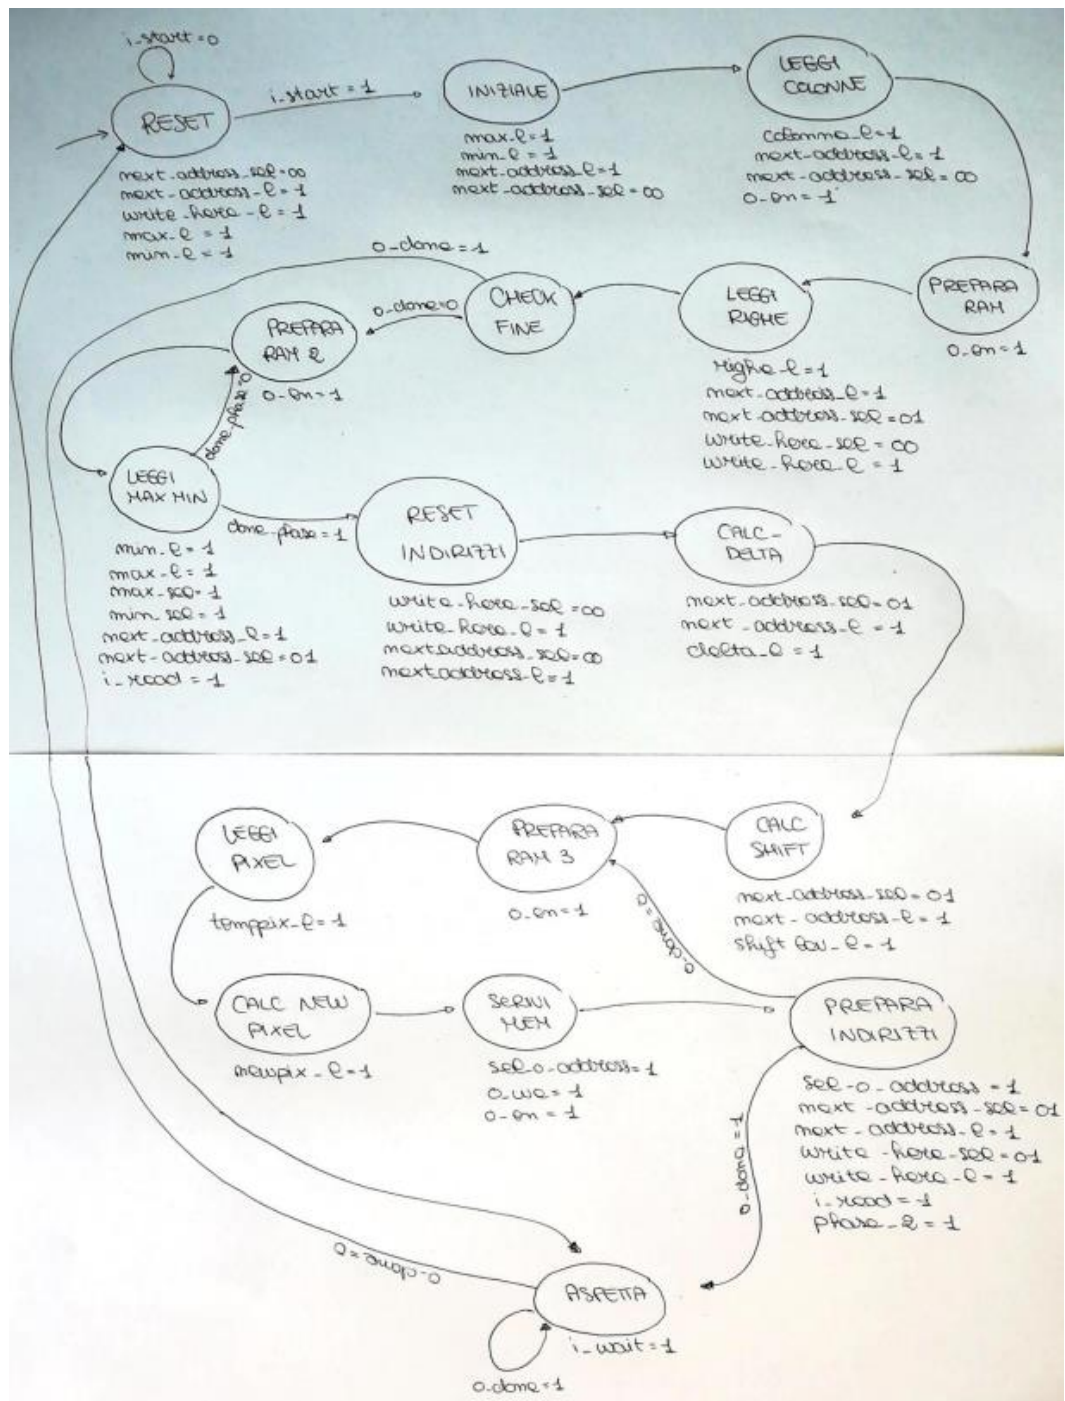 i_start = 0
RESET
next-address-sel=00
next-address-e=1
write-here-e=1
max-e=1
min-e=1
i_start = 1
INIZIALE
max-e=1
min-e=1
next-address-e=1
next-address-sel=00
LEGGI
COLONNE
colonna-e=1
next-address-e=1
next-address-sel=00
o-en=1
PREPARA
RAM
o-en=1
LEGGI
RIGHE
righe-e=1
next-address-e=1
next-address-sel=01
write-here-sel=00
write-here-e=1
CHECK
FINE
o-done=1
o-done=0
PREPARA
RAM 2
o-en=1
done-phase=0
LEGGI
MAX MIN
min-e=1
max-e=1
max-sel=1
min-sel=1
next-address-e=1
next-address-sel=01
i-read=1
done-phase=1
RESET
INDIRIZZI
write-here-sel=00
write-here-e=1
nextaddress-sel=00
nextaddress-e=1
CALC-
DELTA
next-address-sel=01
next-address-e=1
delta-e=1
CALC
SHIFT
next-address-sel=01
next-address-e=1
shift lev-e=1
PREPARA
RAM 3
o-en=1
LEGGI
PIXEL
temppix-e=1
CALC NEW
PIXEL
newpix-e=1
SCRIVI
MEM
sel-o-address=1
o-we=1
o-en=1
PREPARA
INDIRIZZI
sel-o-address=1
next-address-sel=01
next-address-e=1
write-here-sel=01
write-here-e=1
i-read=1
phase-2=1
o-done=0
o-done=1
ASPETTA
i-wait=1
o-done=0
o-done=1